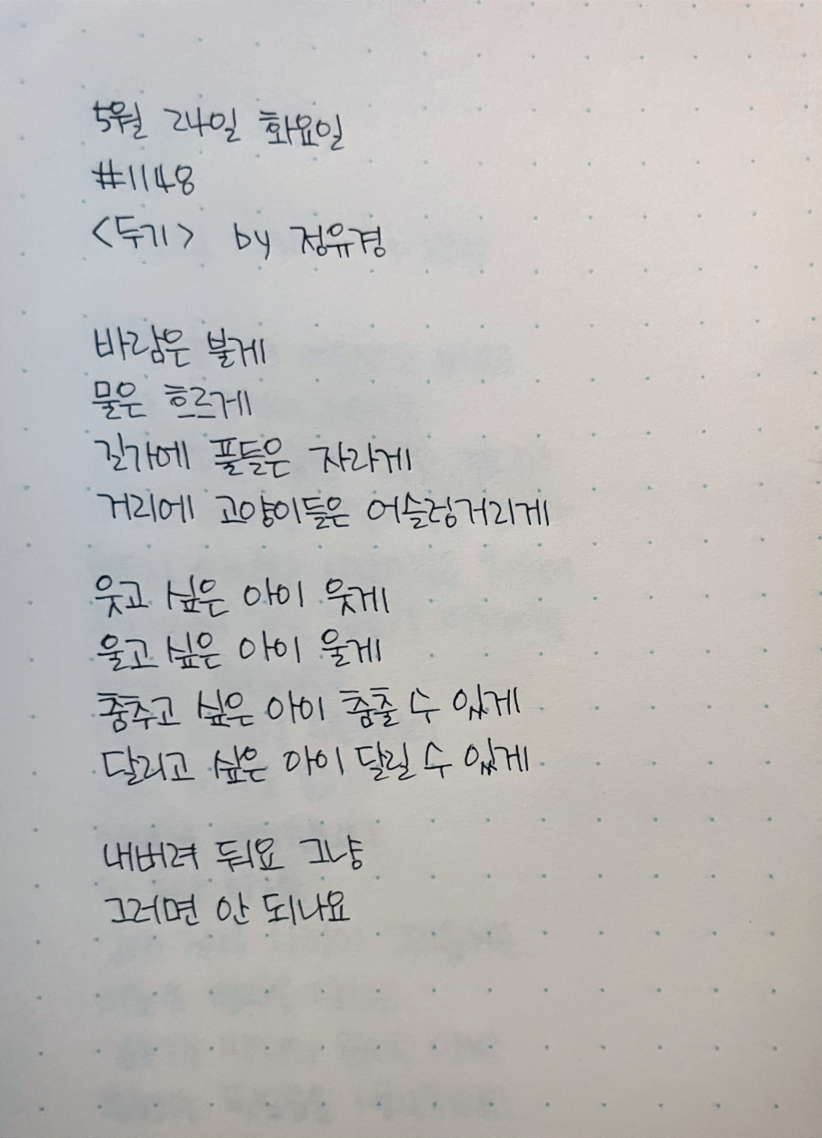 5월 24일 화요일
#1148
<두기> by 정유경
바람은 불게
물은 흐르게
길가에 풀들은 자라게
거리에 고양이들은 어슬렁거리게
웃고 싶은 아이 웃게
울고 싶은 아이 울게
춤추고 싶은 아이 춤출 수 있게
달리고 싶은 아이 달릴 수 있게
내버려 둬요 그냥
그러면 안 되나요